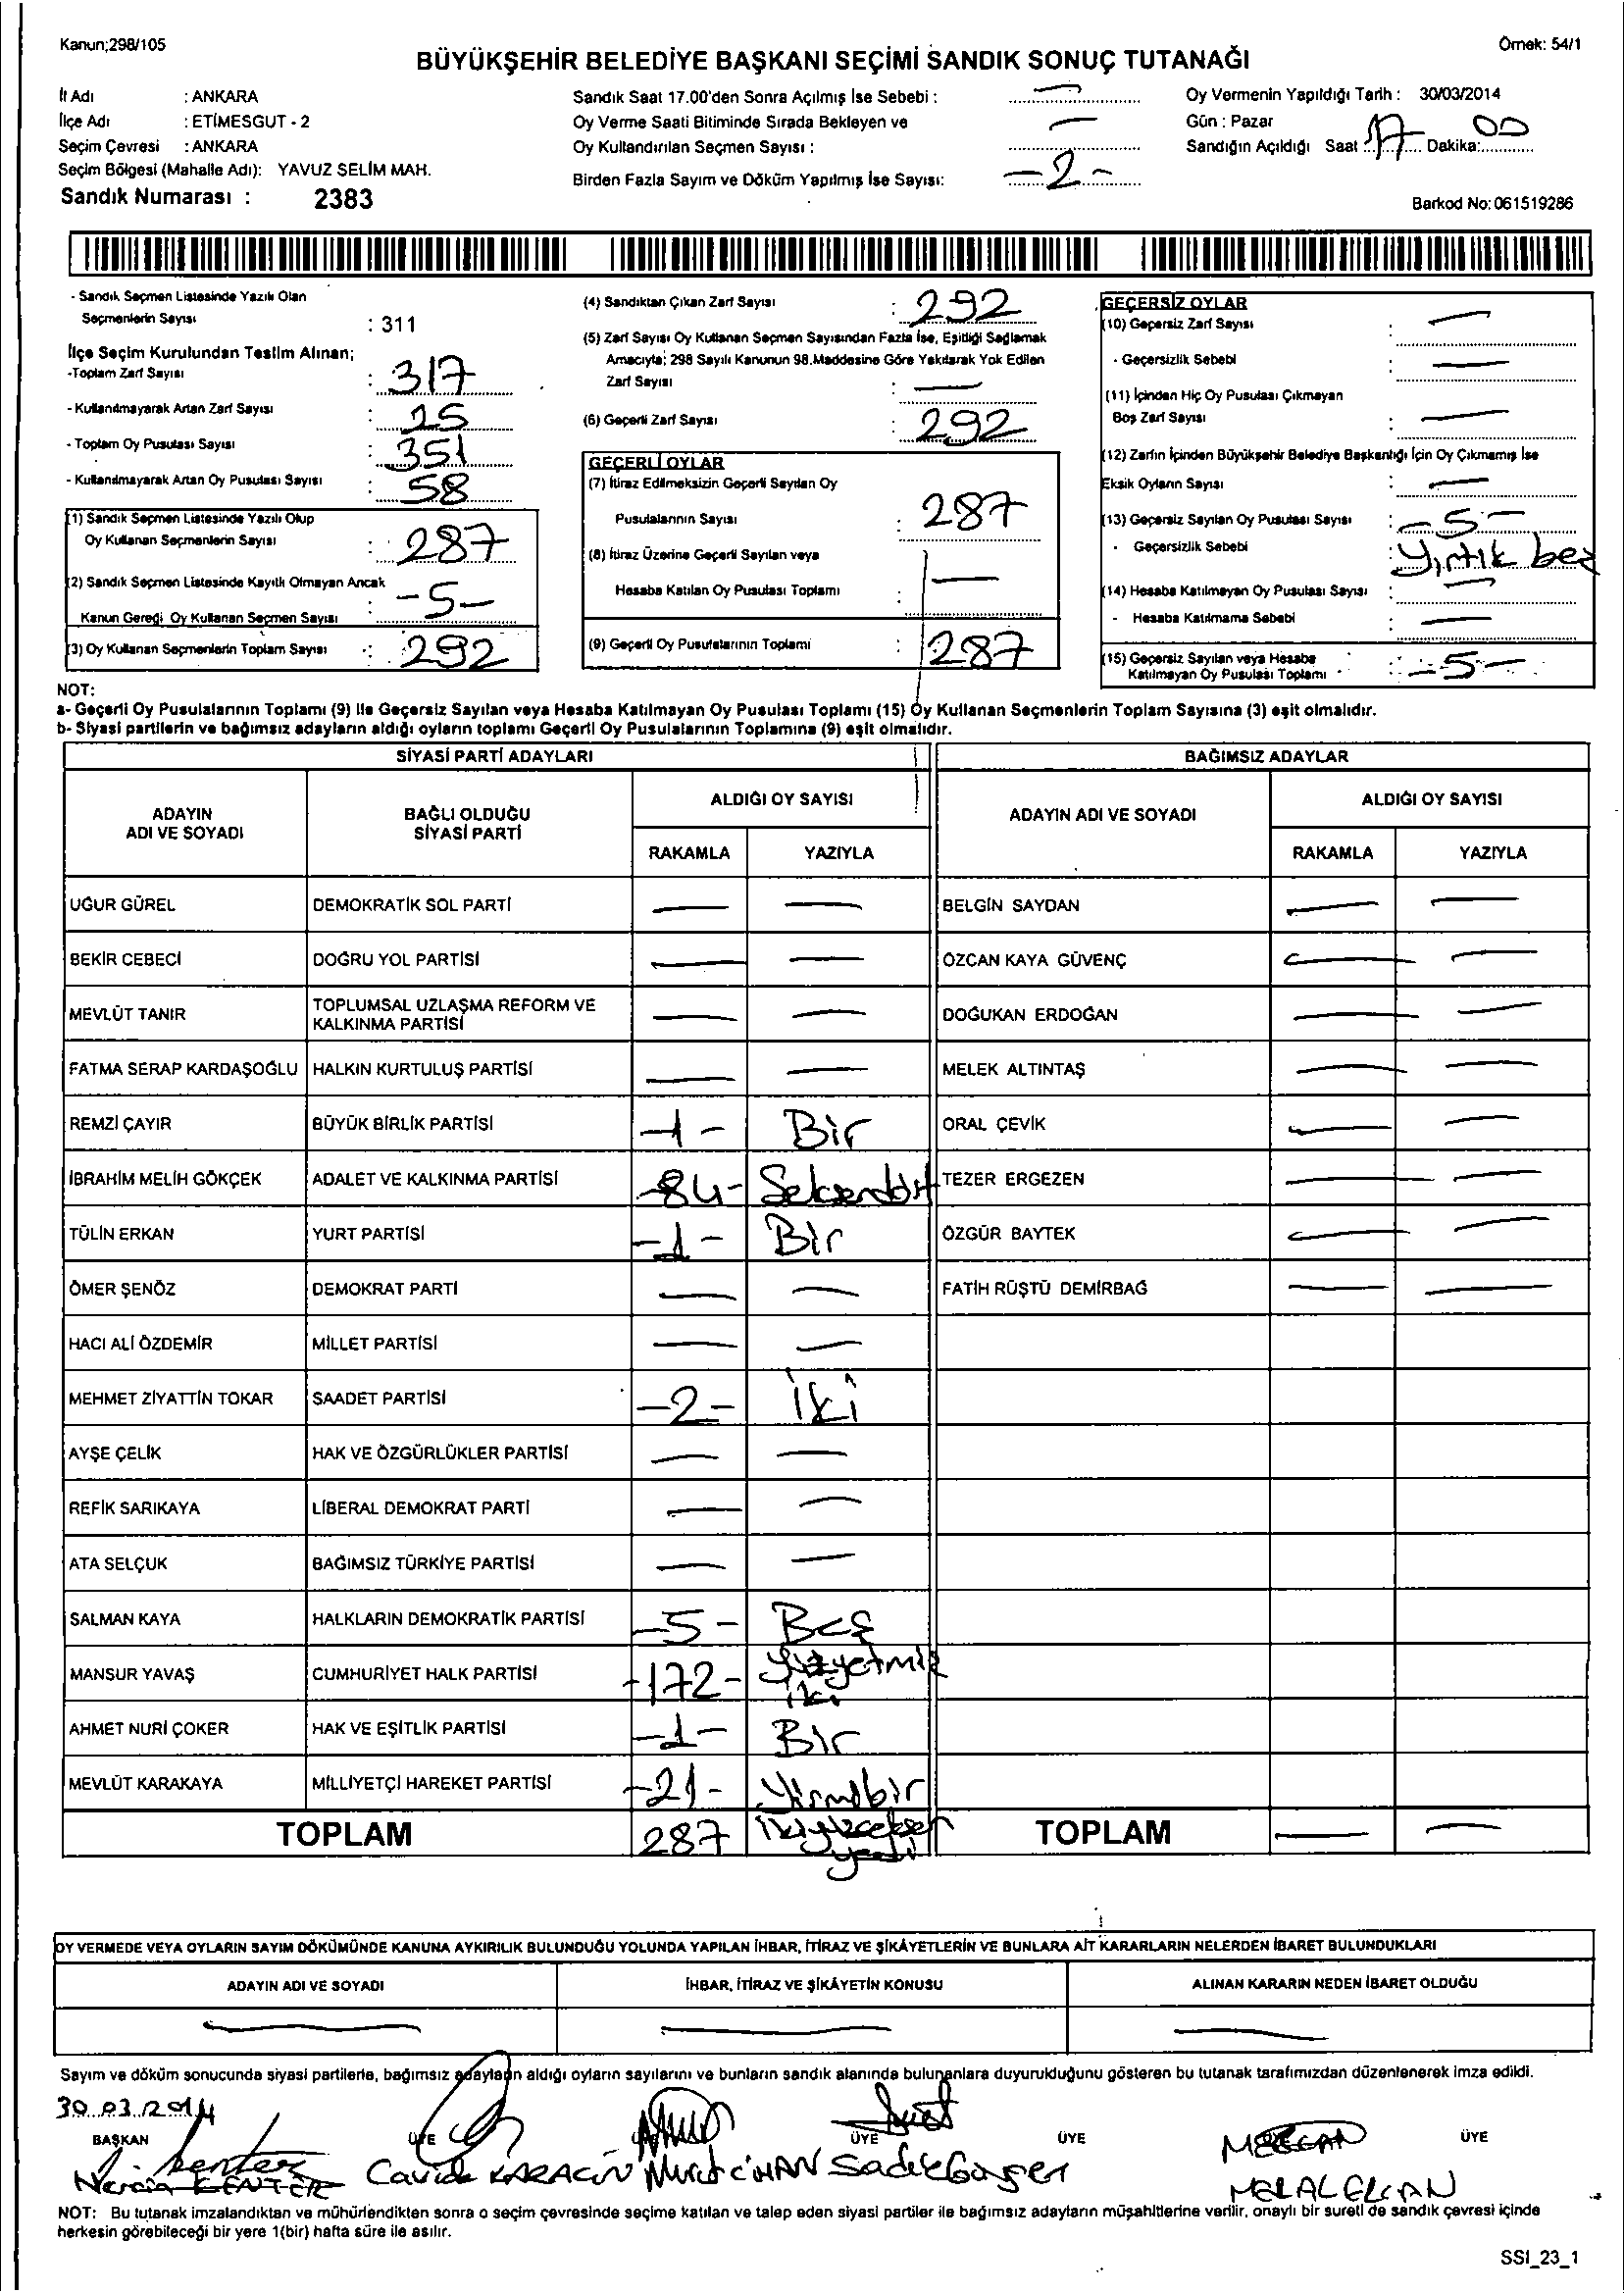 Kanun;298/105
Örnek: 54/1
BÜYÜKŞEHİR BELEDİYE BAŞKANI SEÇİMİ SANDIK SONUÇ TUTANAĞI
İl Adı : ANKARA
İlçe Adı : ETİMESGUT - 2
Seçim Çevresi : ANKARA
Seçim Bölgesi (Mahalle Adı): YAVUZ SELİM MAH.
Sandık Numarası : 2383
Sandık Saat 17.00'den Sonra Açılmış İse Sebebi : —
Oy Verme Saati Bitiminde Sırada Bekleyen ve
Oy Kullandırılan Seçmen Sayısı : —
Birden Fazla Sayım ve Döküm Yapılmış İse Sayısı: -2-
Oy Vermenin Yapıldığı Tarih : 30/03/2014
Gün : Pazar
Sandığın Açıldığı Saat : 17 Dakika: 00
Barkod No: 061519286
- Sandık Seçmen Listesinde Yazılı Olan
Seçmenlerin Sayısı : 311
İlçe Seçim Kurulundan Teslim Alınan;
-Toplam Zarf Sayısı : 317
- Kullanılmayarak Artan Zarf Sayısı : 25
- Toplam Oy Pusulası Sayısı : 351
- Kullanılmayarak Artan Oy Pusulası Sayısı : 58
(1) Sandık Seçmen Listesinde Yazılı Olup
Oy Kullanan Seçmenlerin Sayısı : 287
(2) Sandık Seçmen Listesinde Kayıtlı Olmayan Ancak
Kanun Gereği Oy Kullanan Seçmen Sayısı : -5-
(3) Oy Kullanan Seçmenlerin Toplam Sayısı : 292
(4) Sandıktan Çıkan Zarf Sayısı : 292
(5) Zarf Sayısı Oy Kullanan Seçmen Sayısından Fazla İse, Eşitliği Sağlamak
Amacıyla; 298 Sayılı Kanunun 98.Maddesine Göre Yakılarak Yok Edilen
Zarf Sayısı : —
(6) Geçerli Zarf Sayısı : 292
GEÇERLİ OYLAR
(7) İtiraz Edilmeksizin Geçerli Sayılan Oy
Pusulalarının Sayısı : 287
(8) İtiraz Üzerine Geçerli Sayılan veya
Hesaba Katılan Oy Pusulası Toplamı : —
(9) Geçerli Oy Pusulalarının Toplamı : 287
GEÇERSİZ OYLAR
(10) Geçersiz Zarf Sayısı : —
- Geçersizlik Sebebi : —
(11) İçinden Hiç Oy Pusulası Çıkmayan
Boş Zarf Sayısı : —
(12) Zarfın İçinden Büyükşehir Belediye Başkanlığı İçin Oy Çıkmamış İse
Eksik Oyların Sayısı : —
(13) Geçersiz Sayılan Oy Pusulası Sayısı : -5-
- Geçersizlik Sebebi : Yırtık bez
(14) Hesaba Katılmayan Oy Pusulası Sayısı : —
- Hesaba Katılmama Sebebi : —
(15) Geçersiz Sayılan veya Hesaba
Katılmayan Oy Pusulası Toplamı : -5-
NOT:
a- Geçerli Oy Pusulalarının Toplamı (9) ile Geçersiz Sayılan veya Hesaba Katılmayan Oy Pusulası Toplamı (15) Oy Kullanan Seçmenlerin Toplam Sayısına (3) eşit olmalıdır.
b- Siyasi partilerin ve bağımsız adayların aldığı oyların toplamı Geçerli Oy Pusulalarının Toplamına (9) eşit olmalıdır.
SİYASİ PARTİ ADAYLARI BAĞIMSIZ ADAYLAR
ADAYIN ADI VE SOYADI BAĞLI OLDUĞU SİYASİ PARTİ ALDIĞI OY SAYISI ADAYIN ADI VE SOYADI ALDIĞI OY SAYISI
RAKAMLA YAZIYLA RAKAMLA YAZIYLA
UĞUR GÜREL DEMOKRATİK SOL PARTİ — — BELGİN SAYDAN — —
BEKİR CEBECİ DOĞRU YOL PARTİSİ — — ÖZCAN KAYA GÜVENÇ — —
MEVLÜT TANIR TOPLUMSAL UZLAŞMA REFORM VE KALKINMA PARTİSİ — — DOĞUKAN ERDOĞAN — —
FATMA SERAP KARDAŞOĞLU HALKIN KURTULUŞ PARTİSİ — — MELEK ALTINTAŞ — —
REMZİ ÇAYIR BÜYÜK BİRLİK PARTİSİ -1- Bir ORAL ÇEVİK — —
İBRAHİM MELİH GÖKÇEK ADALET VE KALKINMA PARTİSİ -84- Seksendört TEZER ERGEZEN — —
TÜLİN ERKAN YURT PARTİSİ -1- Bir ÖZGÜR BAYTEK — —
ÖMER ŞENÖZ DEMOKRAT PARTİ — — FATİH RÜŞTÜ DEMİRBAĞ — —
HACI ALİ ÖZDEMİR MİLLET PARTİSİ — —
MEHMET ZİYATTİN TOKAR SAADET PARTİSİ -2- İki
AYŞE ÇELİK HAK VE ÖZGÜRLÜKLER PARTİSİ — —
REFİK SARIKAYA LİBERAL DEMOKRAT PARTİ — —
ATA SELÇUK BAĞIMSIZ TÜRKİYE PARTİSİ — —
SALMAN KAYA HALKLARIN DEMOKRATİK PARTİSİ -5- Beş
MANSUR YAVAŞ CUMHURİYET HALK PARTİSİ -172- Yüzyetmiş iki
AHMET NURİ ÇOKER HAK VE EŞİTLİK PARTİSİ -1- Bir
MEVLÜT KARAKAYA MİLLİYETÇİ HAREKET PARTİSİ -21- Yirmibir
TOPLAM 287 İkiyüzseksen yedi TOPLAM — —
OY VERMEDE VEYA OYLARIN SAYIM DÖKÜMÜNDE KANUNA AYKIRILIK BULUNDUĞU YOLUNDA YAPILAN İHBAR, İTİRAZ VE ŞİKÂYETLERİN VE BUNLARA AİT KARARLARIN NELERDEN İBARET BULUNDUKLARI
ADAYIN ADI VE SOYADI İHBAR, İTİRAZ VE ŞİKÂYETİN KONUSU ALINAN KARARIN NEDEN İBARET OLDUĞU
— — —
Sayım ve döküm sonucunda siyasi partilerle, bağımsız adayların aldığı oyların sayılarını ve bunların sandık alanında bulunanlara duyurulduğunu gösteren bu tutanak tarafımızdan düzenlenerek imza edildi.
30.03.2014
BAŞKAN ÜYE ÜYE ÜYE ÜYE ÜYE
KENTER Cavide Murat CİHAN Sadık MERAL ELCAN
NOT: Bu tutanak imzalandıktan ve mühürlendikten sonra o seçim çevresinde seçime katılan ve talep eden siyasi partiler ile bağımsız adayların müşahitlerine verilir, onaylı bir sureti de sandık çevresi içinde
herkesin görebileceği bir yere 1(bir) hafta süre ile asılır.
SSI_23_1